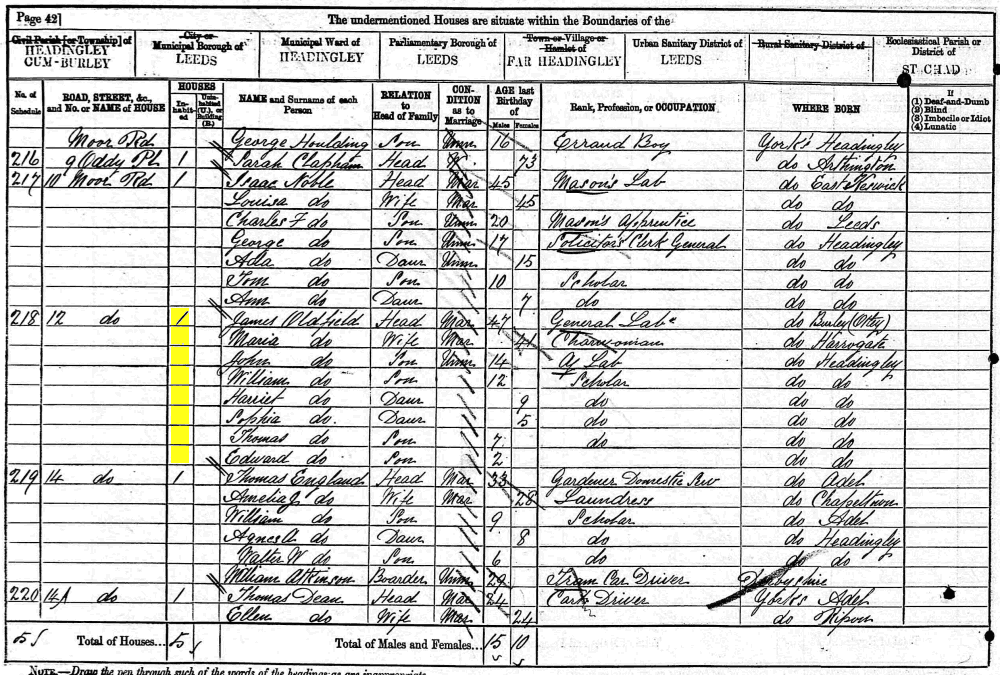 Page 42] The undermentioned Houses are situate within the Boundaries of the
Civil Parish [or Township] of City or Municipal Borough of Municipal Ward of Parliamentary Borough of Town or Village or Hamlet of Urban Sanitary District of Rural Sanitary District of Ecclesiastical Parish or District of
HEADINGLEY CUM-BURLEY LEEDS HEADINGLEY LEEDS FAR HEADINGLEY LEEDS ST CHAD
No. of Schedule ROAD, STREET, &c., and No. or NAME of HOUSE HOUSES In-habited Uninhabited (U.), or Building (B.) NAME and Surname of each Person RELATION to Head of Family CON-DITION as to Marriage AGE last Birthday of Males Females Rank, Profession, or OCCUPATION WHERE BORN If (1) Deaf-and-Dumb (2) Blind (3) Imbecile or Idiot (4) Lunatic
Moor Rd George Houlding Son Unm 16 Errand Boy York's Headingley
216 9 Oddy Pl 1 Sarah Clapham Head W. 73 do Arthington
217 10 Moor Rd 1 Isaac Noble Head Mar 45 Mason's Lab do East Keswick
Louisa do Wife Mar 45 do do
Charles F do Son Unm 20 Mason's Apprentice do Leeds
George do Son Unm 17 Solicitors Clerk General do Headingley
Ada do Daur Unm 15 do do
Tom do Son 10 Scholar do do
Ann do Daur 7 do do do
218 12 do 1 James Oldfield Head Mar 47 General Lab do Burley (Otley)
Maria do Wife Mar 41 Charwoman do Harrogate
John do Son Unm 14 Ag Lab do Headingley
William do Son 12 Scholar do do
Harriet do Daur 9 do do do
Sophia do. Daur 5 do do do
Thomas do Son 7 do do do
Edward do Son 2 do do
219 14 do 1 Thomas England Head Mar 33 Gardener Domestic Serv do Adel
Amelia J do Wife Mar 28 Laundress do Chapeltown
William do Son 9 Scholar do Adel
Agnes A do Daur 8 do do Headingley
Walter W do Son 6 do do do
William Atkinson Boarder Unm 29 Tram Car Driver Derbyshire
220 14A do 1 Thomas Dean Head Mar 24 Cart Driver Yorks Adel
Ellen do Wife Mar 24 do Ripon
5 Total of Houses... 5 Total of Males and Females... 15 10
NOTE.—Draw the pen through such of the words of the headings as are inappropriate.